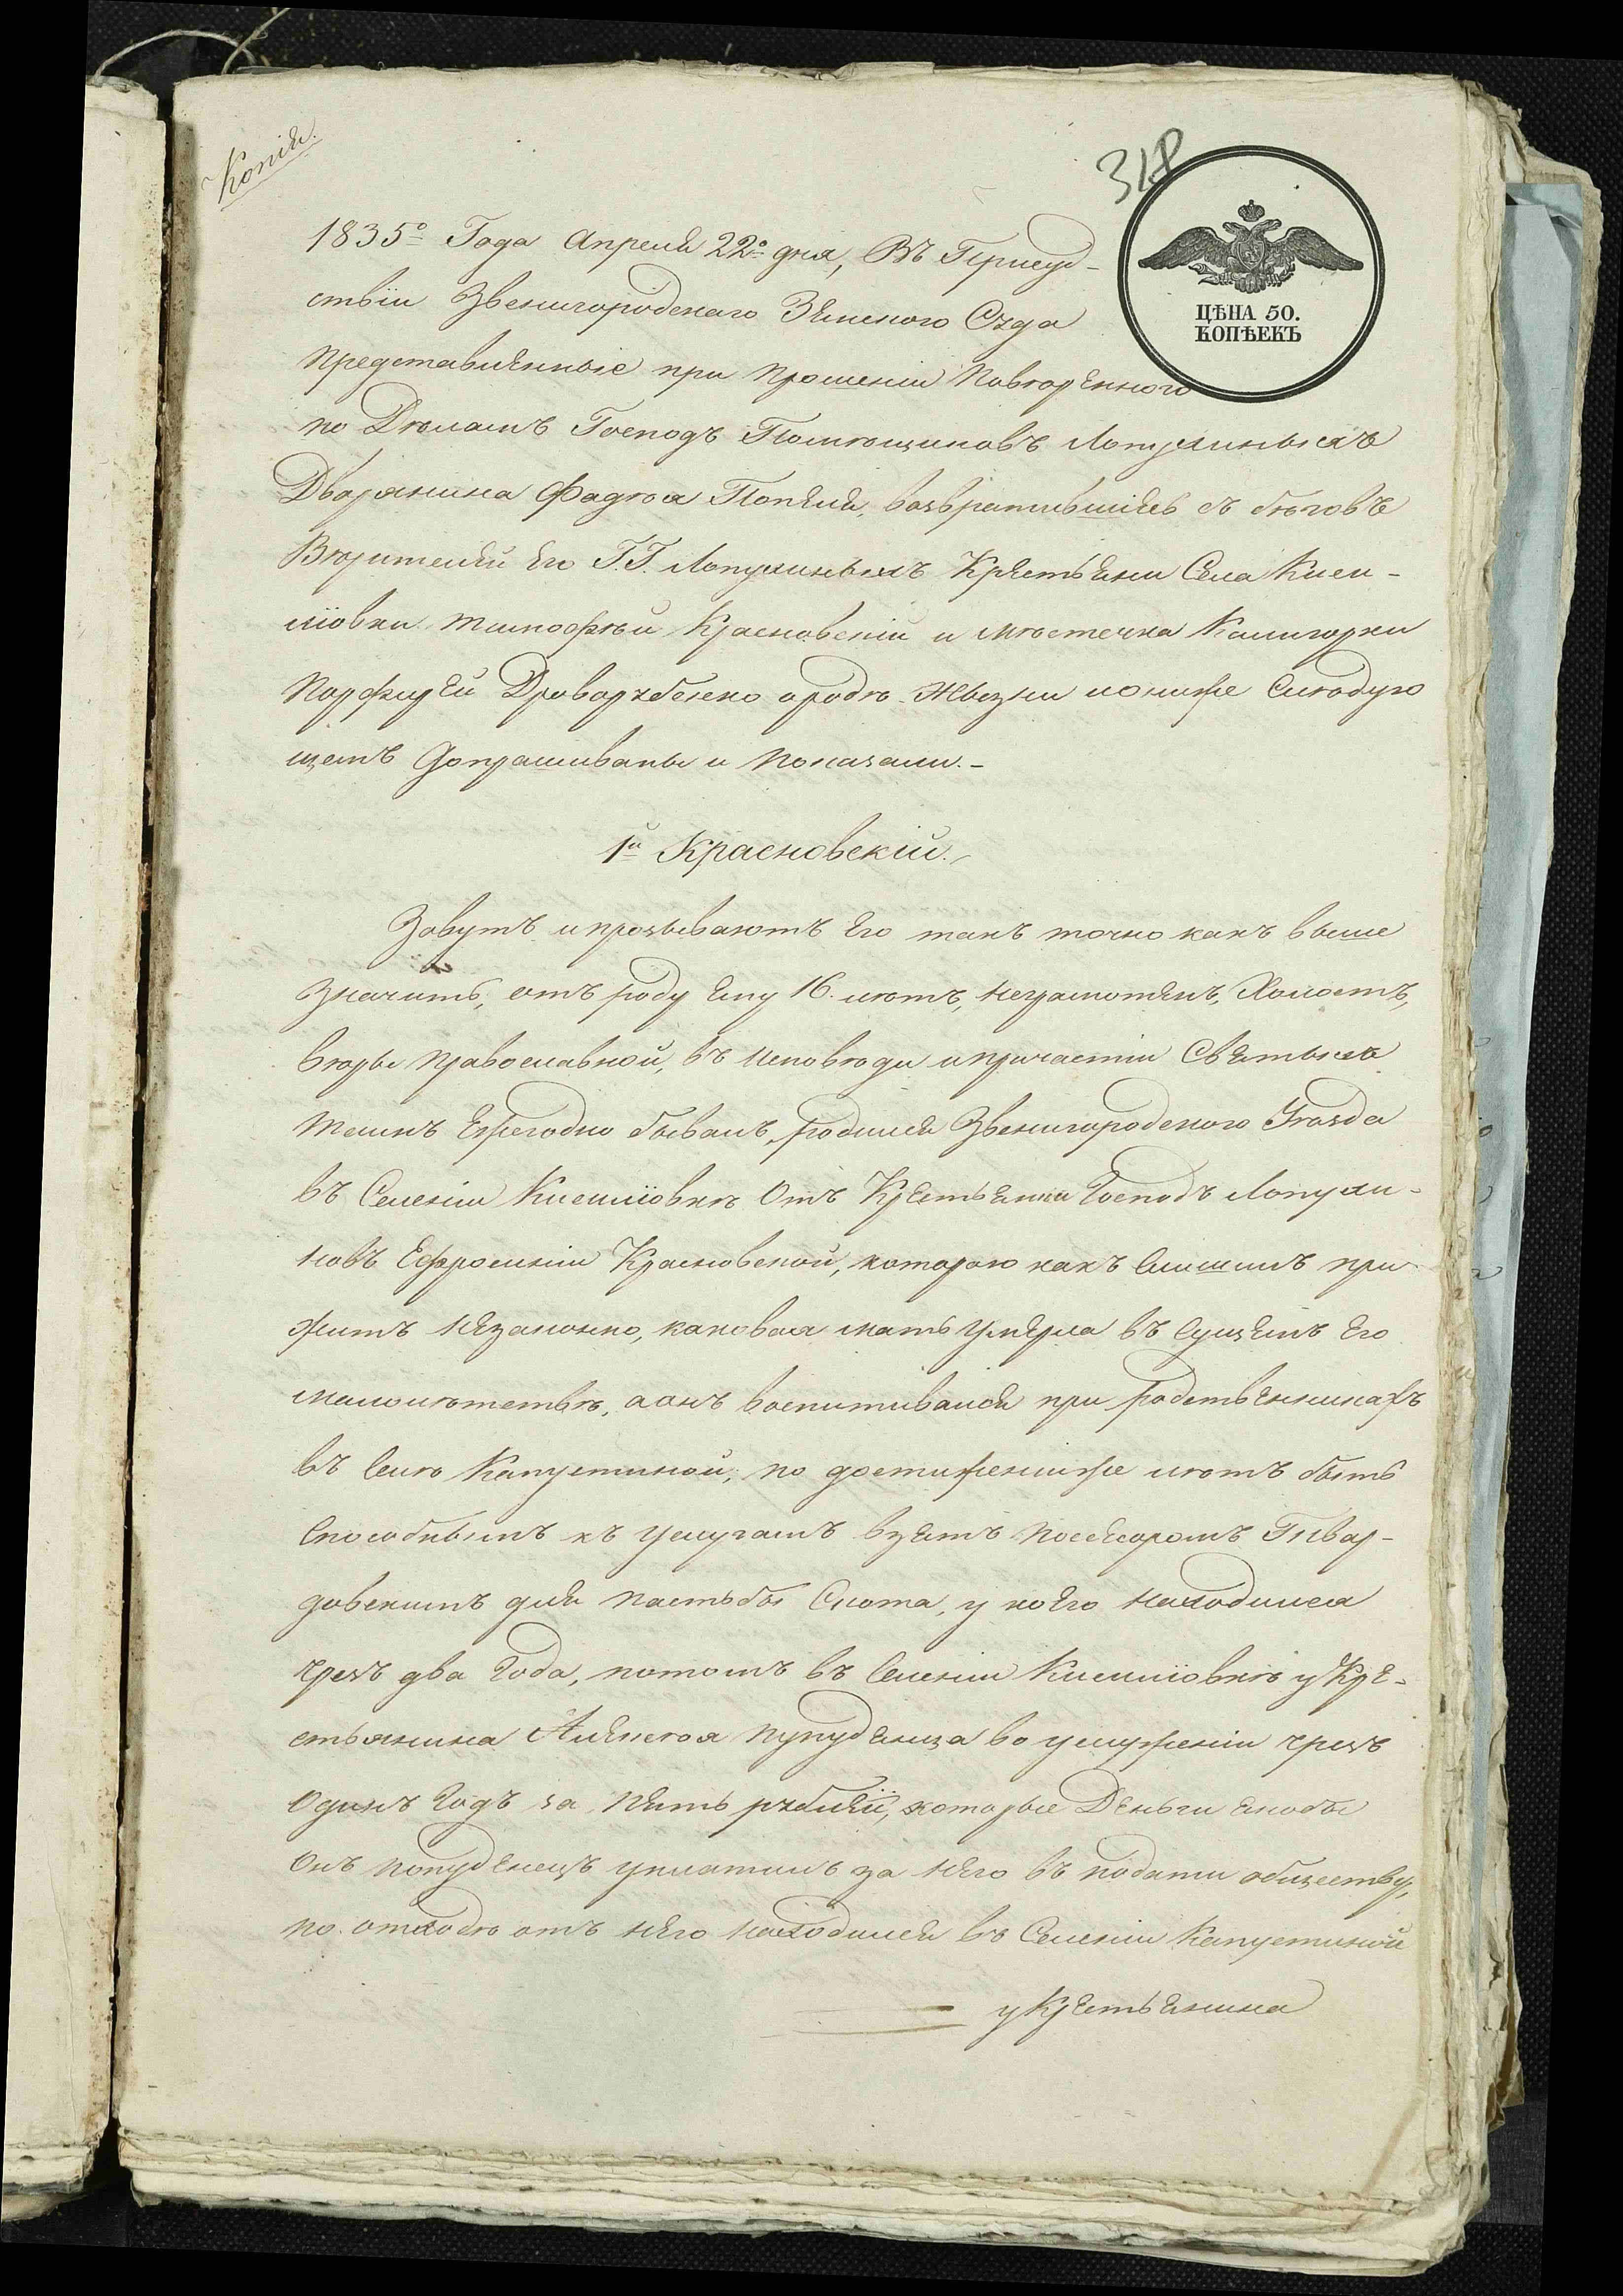 Копія.
318
ЦѢНА 50.
КОПѢЕКЪ
1835го Года Апреля 22го дня, Въ Присуд-
ствіи Звенигородскаго Земского Суда
представленные при прошеніи Повѣренного
по Дѣламъ Господъ Помѣщиковъ Лопухиныхъ
Дворянина Фадѣя Попеля, возвратившіесь съ бѣговъ
Вѣрителей Его Г.Г. Лопухиныхъ Крестьяни Села Кисе-
лїовки Тимофѣй Красновскій и мѣстечка Калигорки
Порфирей Дроворубенко о родѣ Жызни и о ниже Слѣдую
щемъ Допрашиваны и показали.-
1й Красновскій.
Зовутъ и прозываютъ Его такъ точно какъ выше
Значитъ, отъ роду Ему 16. лѣтъ, неграмотенъ, Холостъ,
вѣры православной, въ исповѣди и причастіи Святыхъ
Таинъ Ежегодно бывалъ, родился Звенигородского Уѣзда
въ Селеніи Киселїовкѣ Отъ Крестьянки Господъ Лопухи-
новъ Ефросиніи Красновской, которою какъ Слишилъ при-
житъ незаконно, каковая мать умерла въ Сущемъ Его
малолѣтствѣ, а онъ воспитивался при родственникахъ
въ Селѣ Капустиной, по достиженіи же лѣтъ быть
Способнымъ къ услугамъ взятъ посесоромъ Твар-
довскимъ для пастьбы Скота, у коего находился
чрезъ два Года, потомъ въ Селеніи Киселїовкѣ у Кре-
стьянина Алексѣя Пупуденца во услуженіи чрезъ
Одинъ Годъ за пять рублей, которые Деньги якобы
Онъ Попуденецъ уплатилъ за него въ подати обществу,
по отходѣ отъ него находился въ Селеніи Капустиной
у Крестьянина